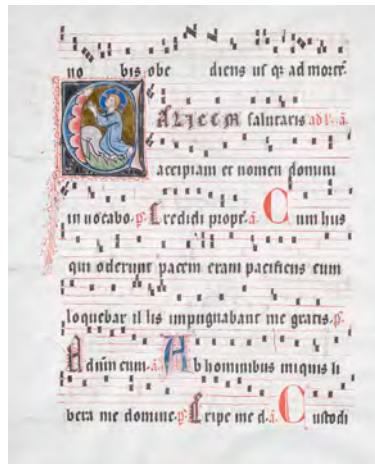 no bis obe diens us qȝ ad mortē.
CALICEM salutaris
accipiam et nomen domini
in uocabo. p̄. Credidi propt̄. a. Cum hiis
qui oderunt pacem eram pacificus cum
loquebar il lis impugnabant me gratis. p̄.
Ad dn̄m cum. a. Ab hominibus iniquis li
bera me domine. p̄. Eripe me d. a. Custodi